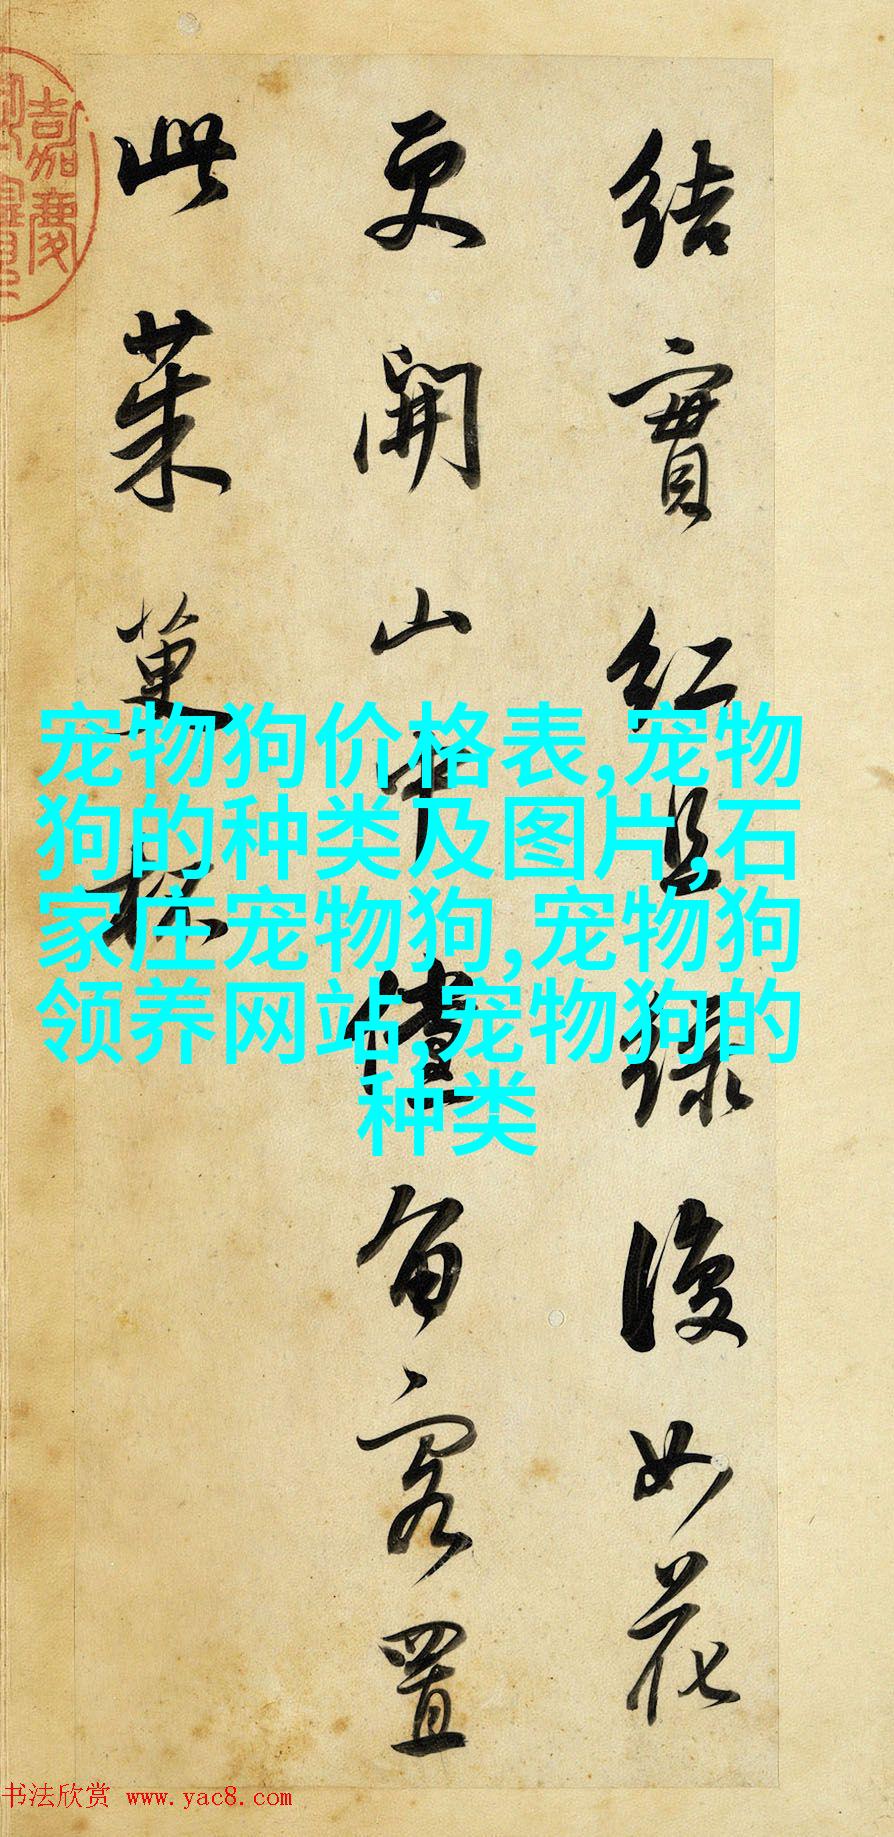 結實紅且綠復如花
更開山中儻留客置
此茱萸杯
嘉慶
宠物狗价格表,宠物
狗的种类及图片,石
家庄宠物狗,宠物狗
领养网站,宠物狗的
种类
书法欣赏 www.yac8.com